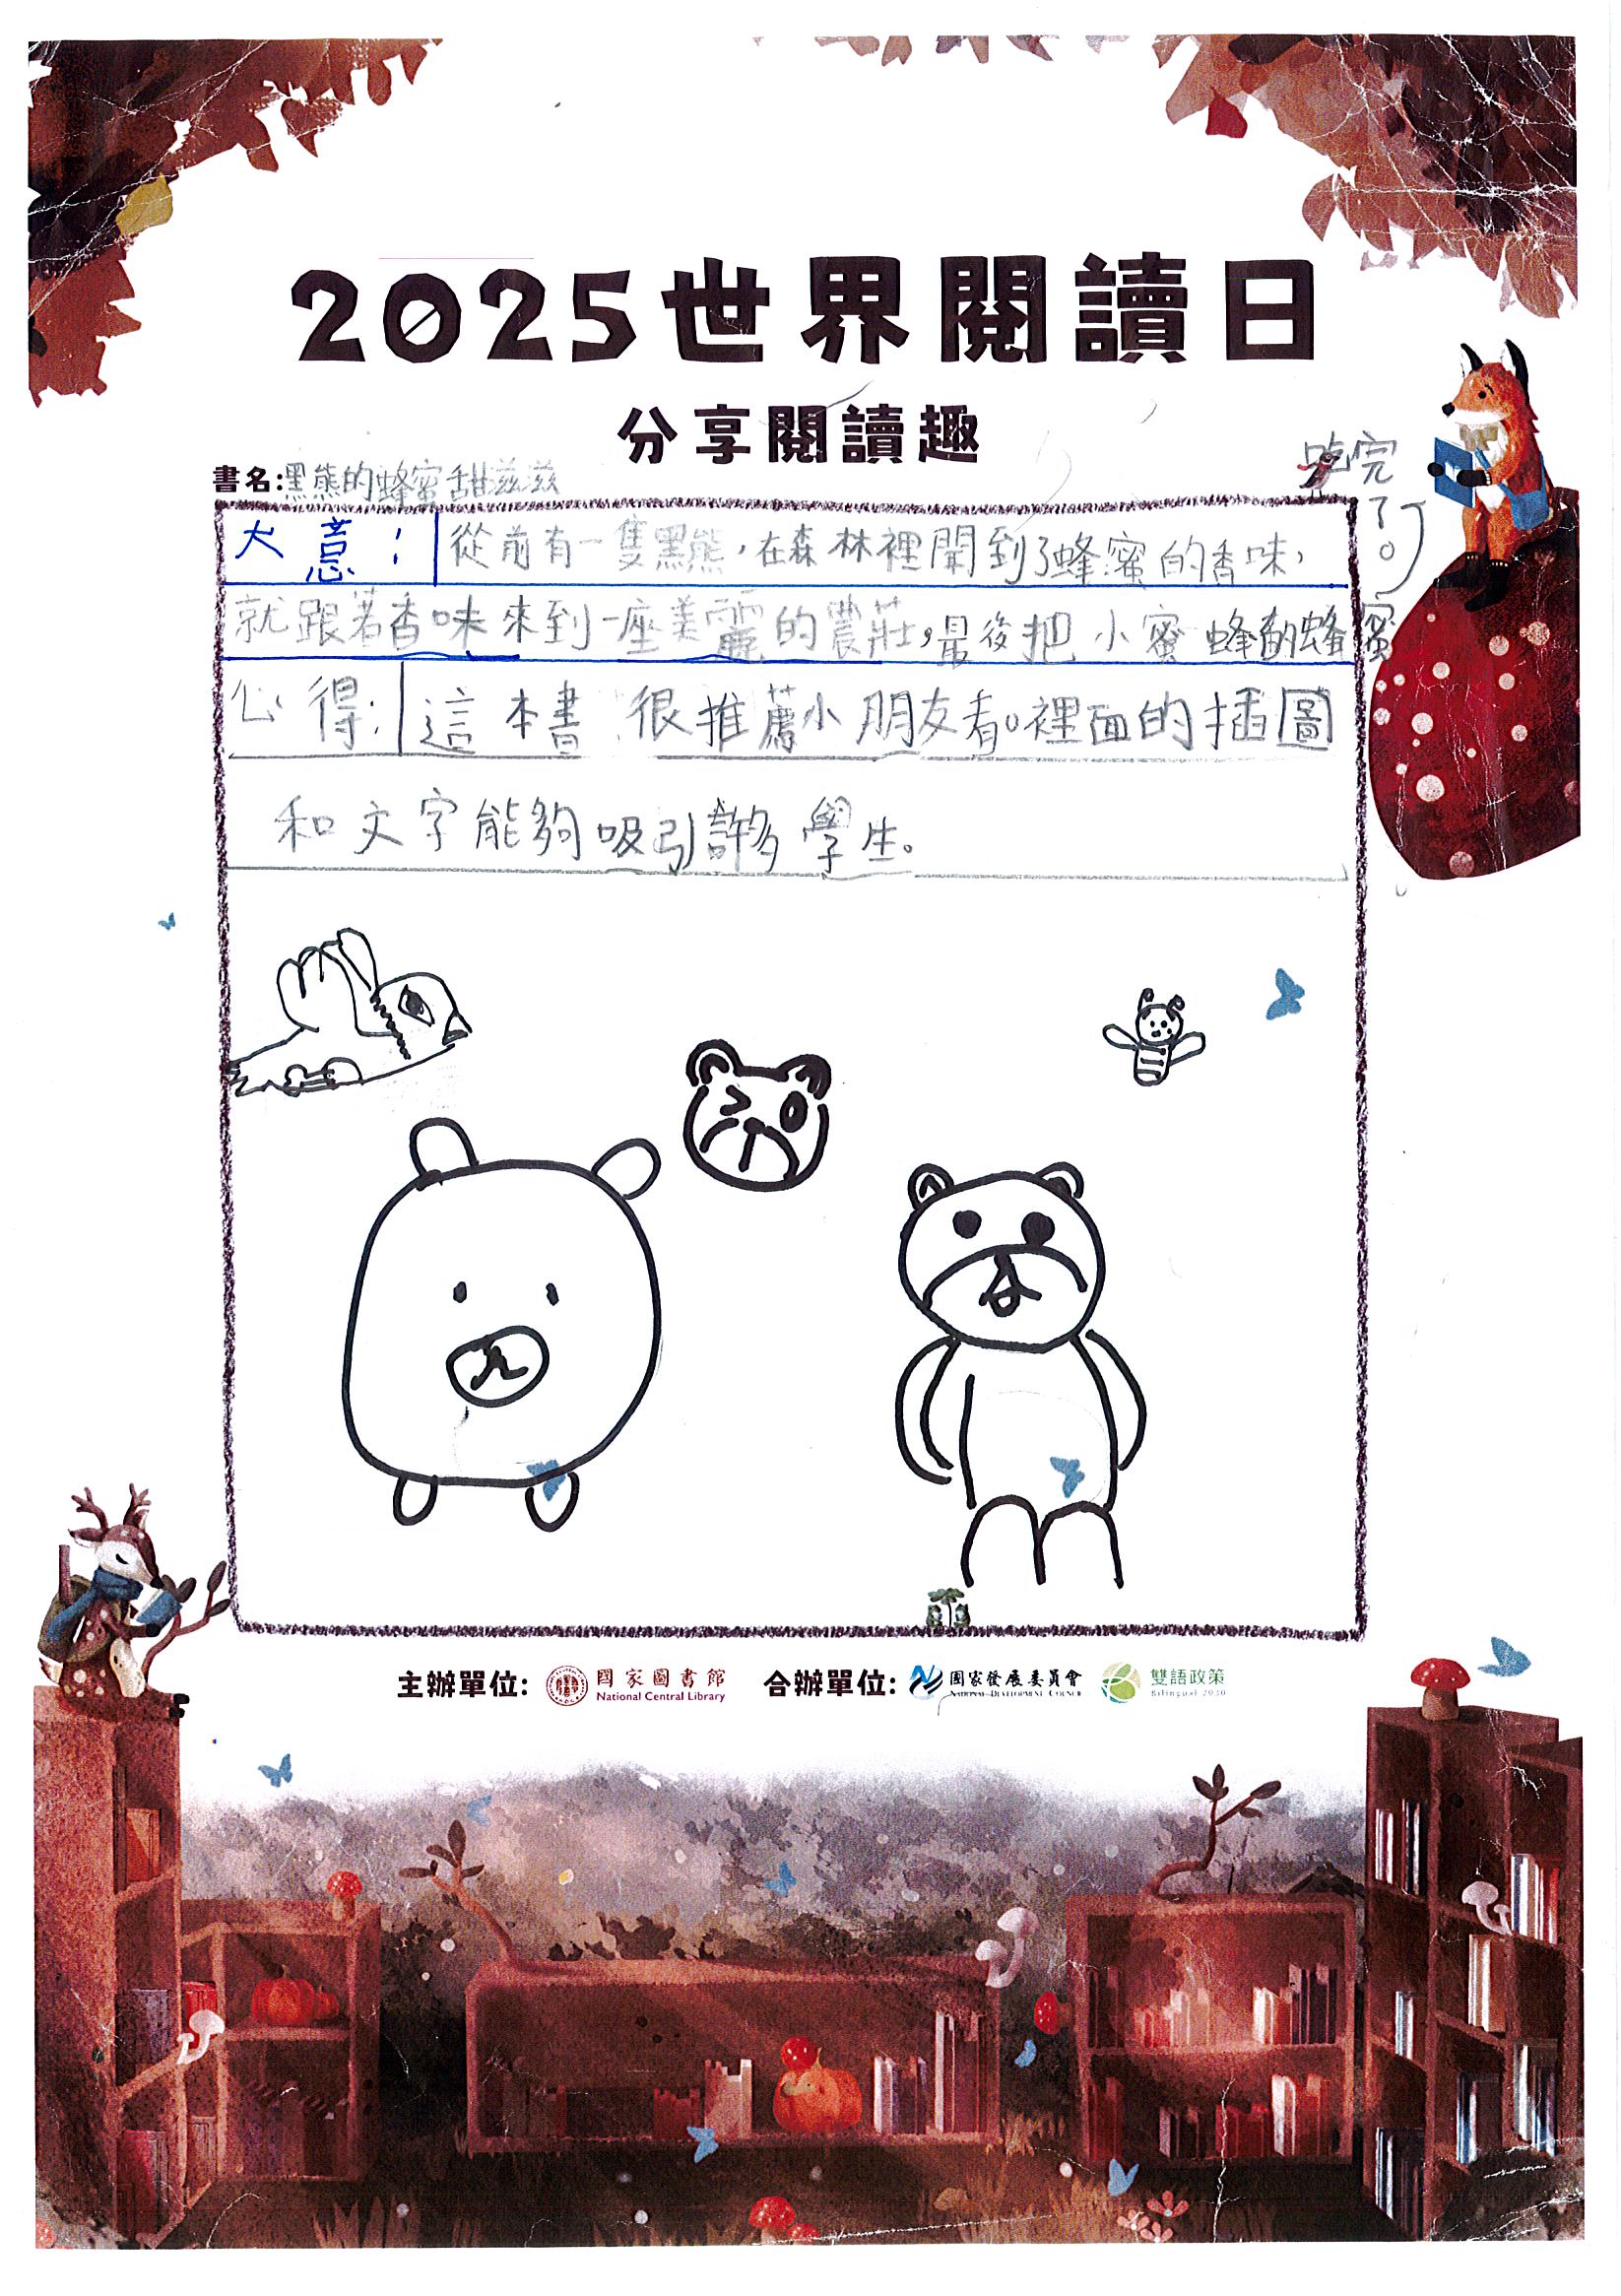 2025世界閱讀日
分享閱讀趣
書名:黑熊的蜂蜜甜滋滋
大意:從前有一隻黑熊,在森林裡聞到了蜂蜜的香味,
就跟著香味來到一座美麗的農莊,最後把小蜜蜂的蜂蜜
吃完了。
心得:這本書很推薦小朋友看。裡面的插圖
和文字能夠吸引許多學生。
主辦單位: 國家圖書館 National Central Library 合辦單位: 國家發展委員會 National Development Council 雙語政策 Bilingual 2030